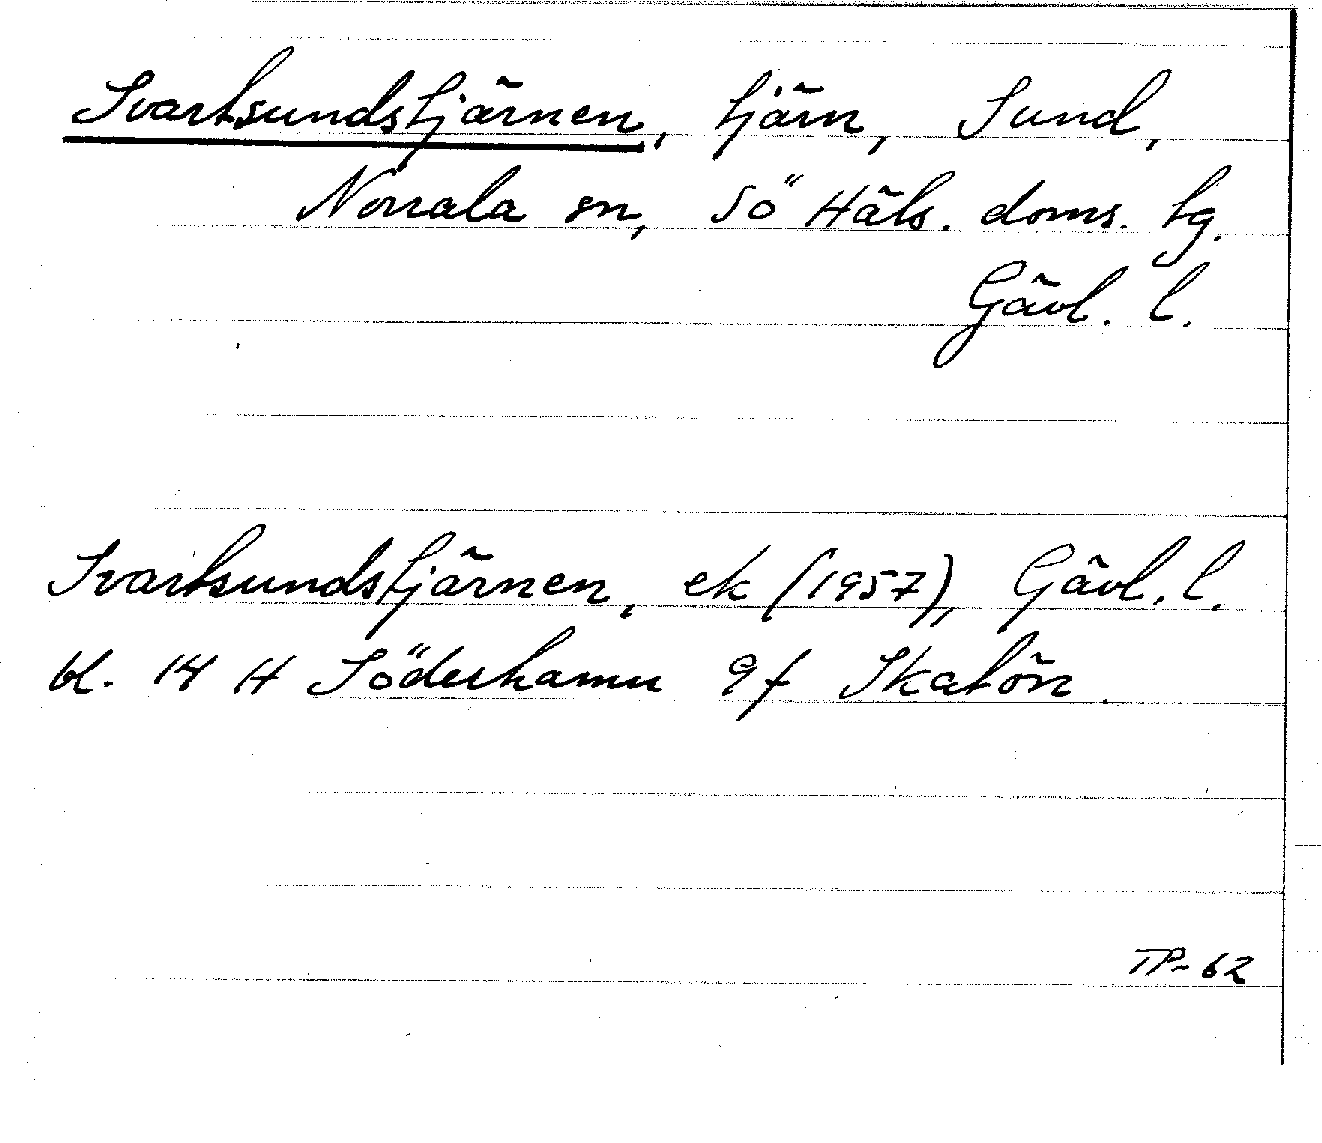 Svartsundstjärnen, tjärn, Sund,
Norrala sn, Sö Häls. doms. tg.
Gävl. l.
Svartsundstjärnen, ek (1957), Gävl. l.
bl. 14 H Söderhamn 9f Skatön.
TP-62